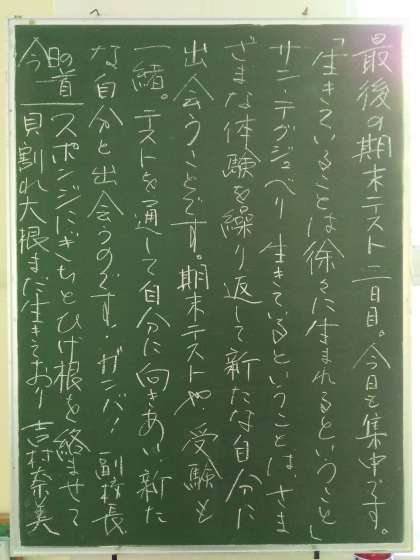 最後の期末テスト二日目。今日も集中です。
「生きていることは徐々に生まれるということ」
サン・テグジュペリ 生きているということは、さま
ざまな体験を繰り返して新たな自分に
出会うことです。期末テストや、受験も
一緒。テストを通して自分に向きあい新た
な自分と出会うのです。ガンバ！ 副校長
今日の一首 スポンジにぎちぎちとひげ根を絡ませて
貝割れ大根まだ生きており 吉村奈美